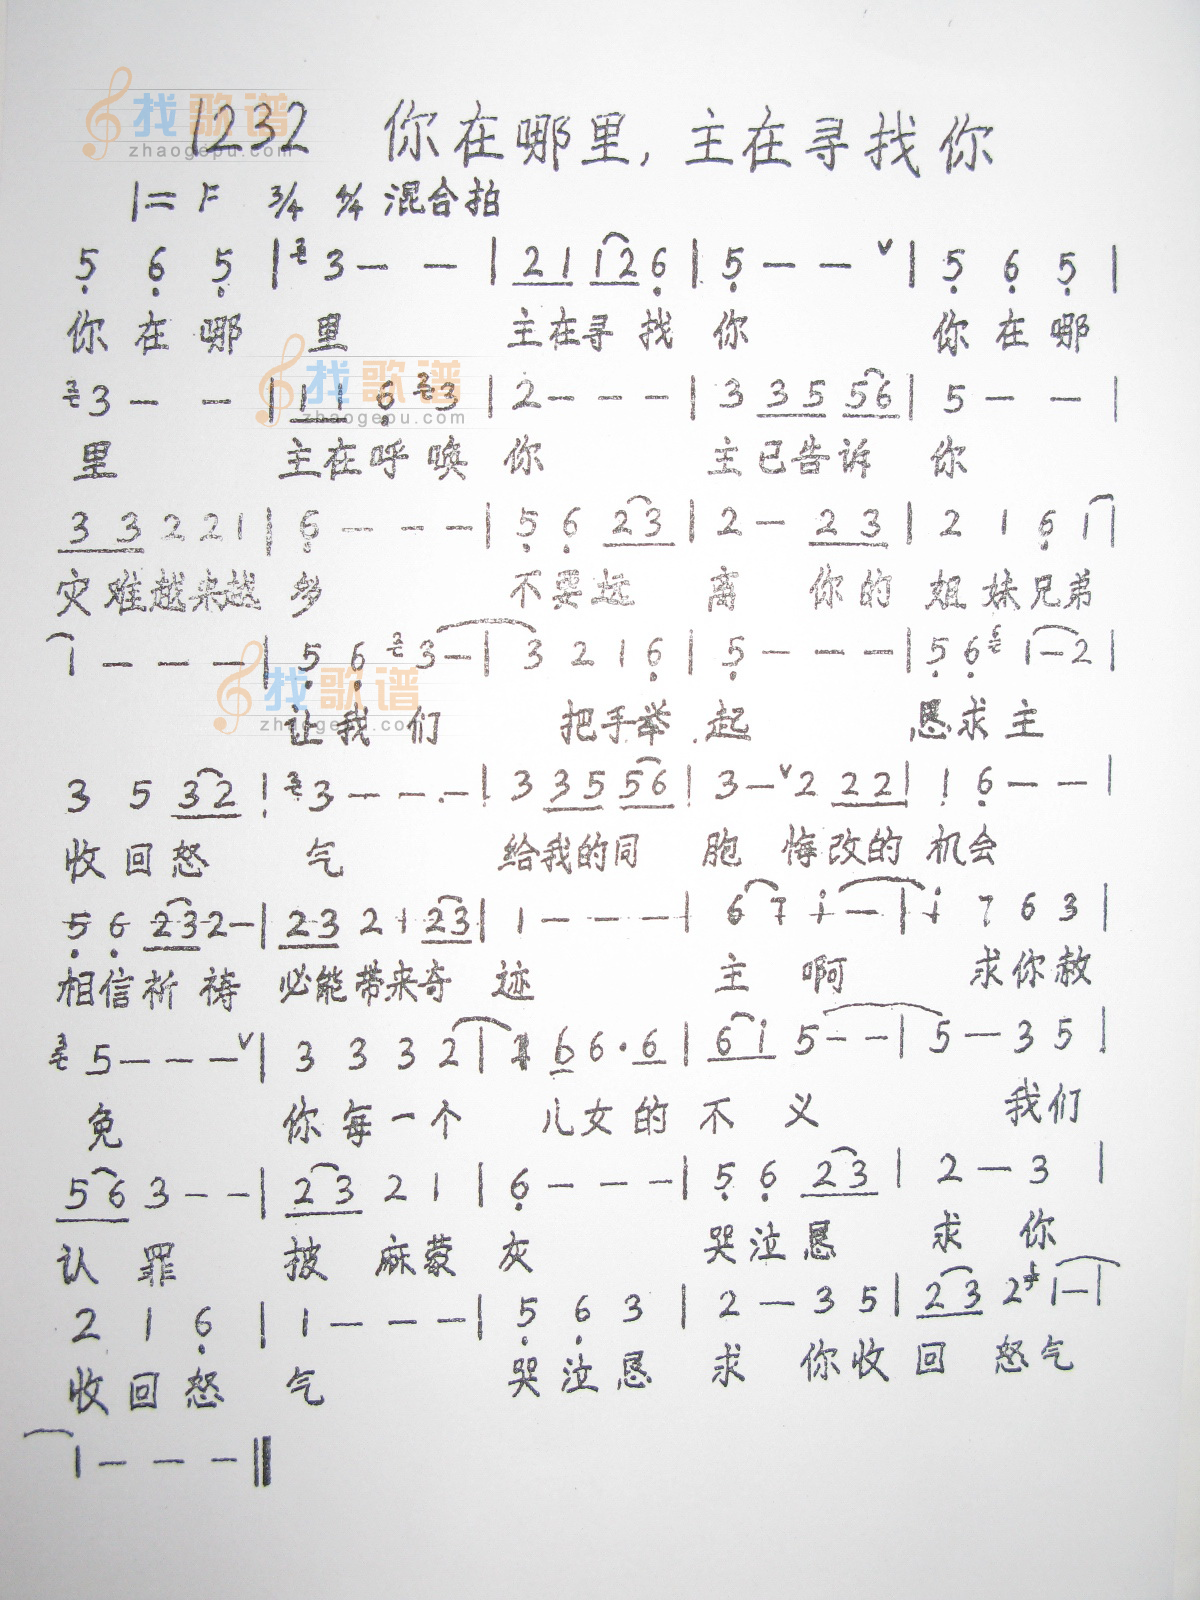 找歌谱
zhaogepu.com
1232 你在哪里,主在寻找你
1=F 3/4 4/4 混合拍
5 6 5 | 3 - - | 2 1 1 2 6 | 5 - - ∨ | 5 6 5 |
你在哪 里 主在寻找 你 你在哪
3 - - | 1 1 6 3 | 2 - - - | 3 3 5 5 6 | 5 - - |
找歌谱
zhaogepu.com
里 主在呼唤 你 主已告诉 你
3 3 2 2 1 | 6 - - - | 5 6 2 3 | 2 - 2 3 | 2 1 6 1 |
灾难越来越 多 不要远 离 你的 姐妹兄弟
1 - - - | 5 6 3 - | 3 2 1 6 | 5 - - - | 5 6 1 - 2 |
找歌谱
zhaogepu.com
让我们 把手举 起 恳求主
3 5 3 2 | 3 - - - | 3 3 5 5 6 | 3 - ∨ 2 2 2 | 1 6 - - |
收回怒 气 给我的同 胞 悔改的 机会
5 6 2 3 2 - | 2 3 2 1 2 3 | 1 - - - | 6 7 i - | i 7 6 3 |
相信祈祷 必能带来奇 迹 主 啊 求你赦
5 - - - ∨ | 3 3 3 2 | 6 6 · 6 | 6 i 5 - - | 5 - 3 5 |
免 你每一个 儿女的 不 义 我们
5 6 3 - - | 2 3 2 1 | 6 - - - | 5 6 2 3 | 2 - 3 |
认 罪 披麻蒙 灰 哭泣恳 求 你
2 1 6 | 1 - - - | 5 6 3 | 2 - 3 5 | 2 3 2 1 - |
收回怒 气 哭泣恳 求 你收 回 怒气
1 - - - ‖